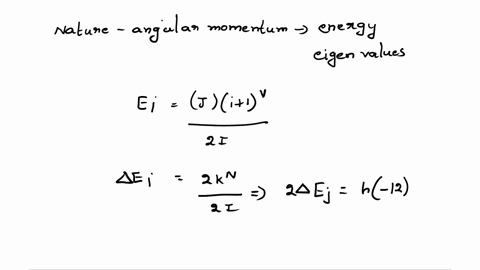 Nature - angular momentum → energy
eigen values
Ei = (J)(i+1)^v / 2I
ΔEi = 2k^N / 2I ⇒ 2ΔEj = h(-12)